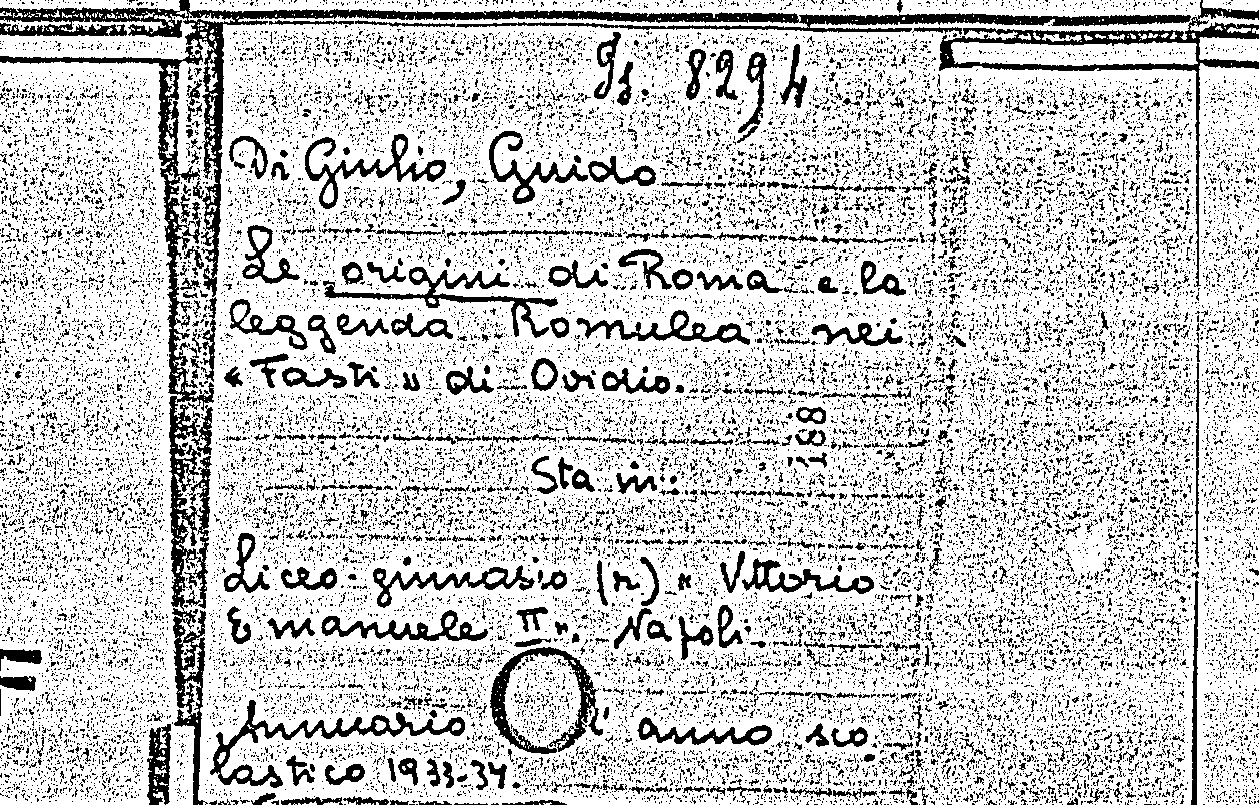 Is. 8294
Di Giulio, Guido
Le origini di Roma e la
leggenda Romulea nei
« Fasti » di Ovidio.
188
Sta in:
Liceo-ginnasio (r.) " Vittorio
Emanuele II ". Napoli.
Annuario l' anno sco
lastico 1933-34.